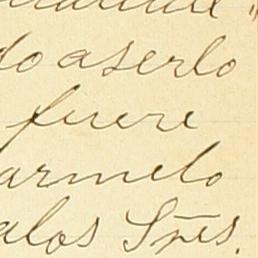 do aserlo
fuere
armelo
alos Sres.